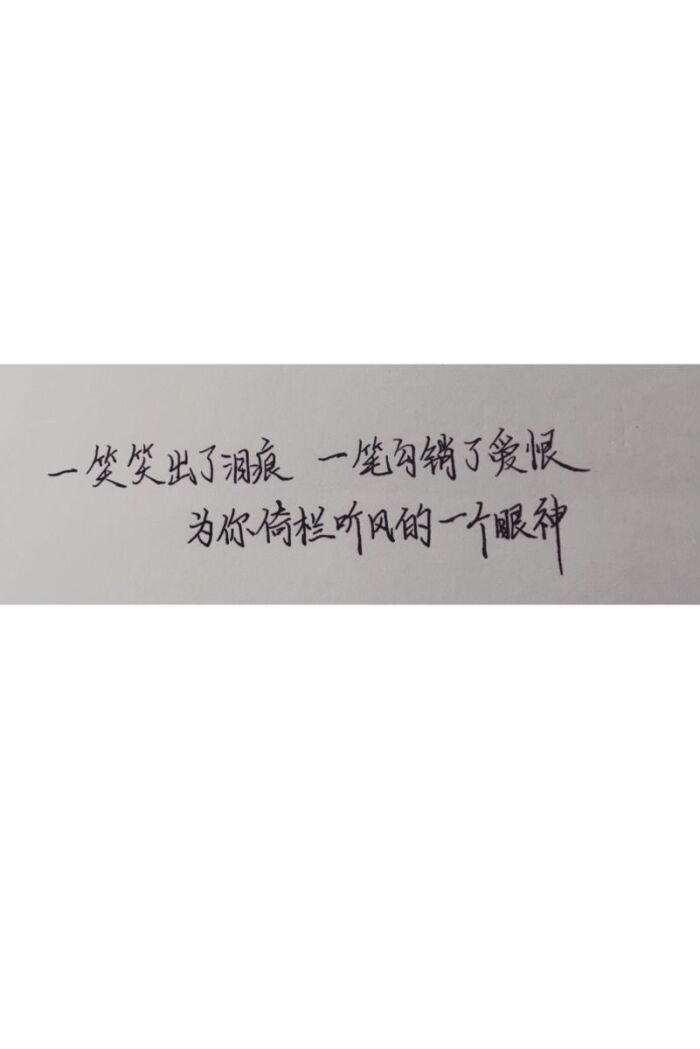 一笑笑出了泪痕 一笔勾销了爱恨
为你倚栏听风的一个眼神